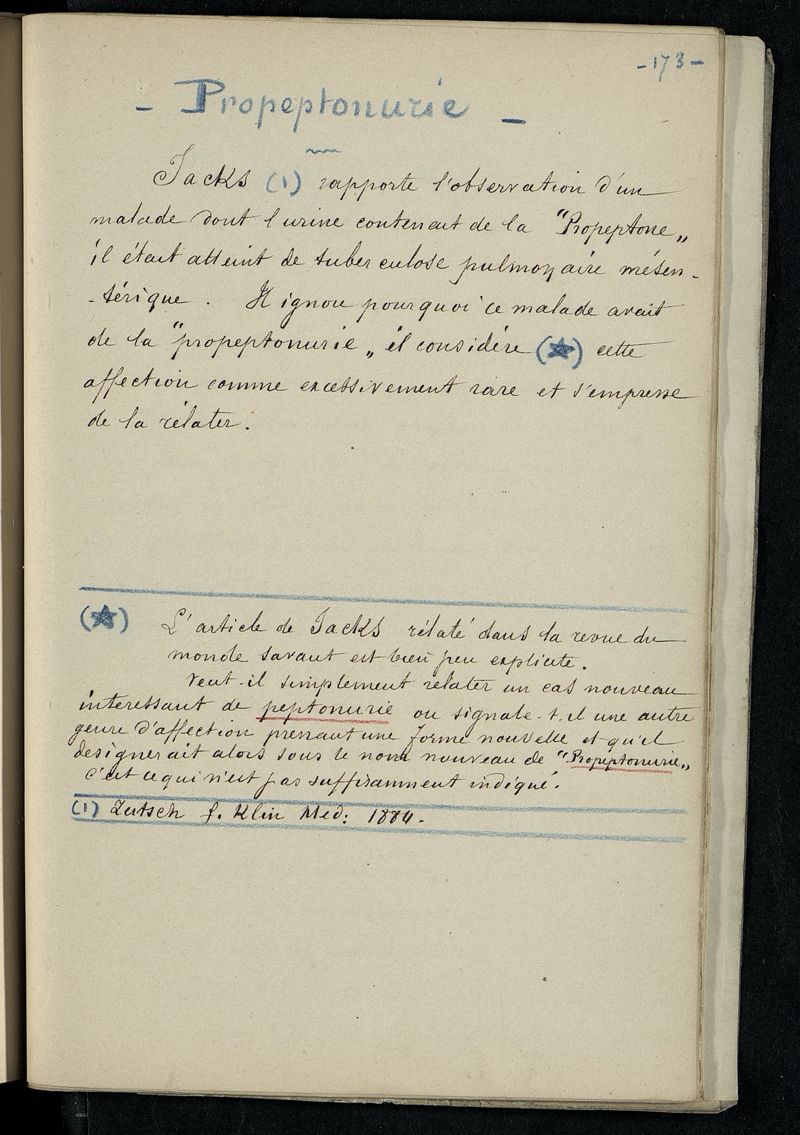 -173-
- Propeptonurie -
Jacks (1) rapporte l'observation d'un
malade dont l'urine contenait de la "Propeptone„
il était atteint de tuberculose pulmonaire mésen-
-térique. Il ignore pourquoi ce malade avait
de la "propeptonurie„ il considére (★) cette
affection comme excessivement rare et s'empresse
de la rélater.
(★) L'article de Jacks rélaté dans la revue du
monde savant est bien peu explicite.
Veut-il simplement relater un cas nouveau
intéressant de peptonurie ou signale-t-il une autre
genre d'affection prenant une forme nouvelle et qu'il
designerait alors sous le nom nouveau de "Propeptonurie„
c'est ce qui n'est pas suffisamment indiqué.
(1) Zeitsch f. Klin Med: 1884.